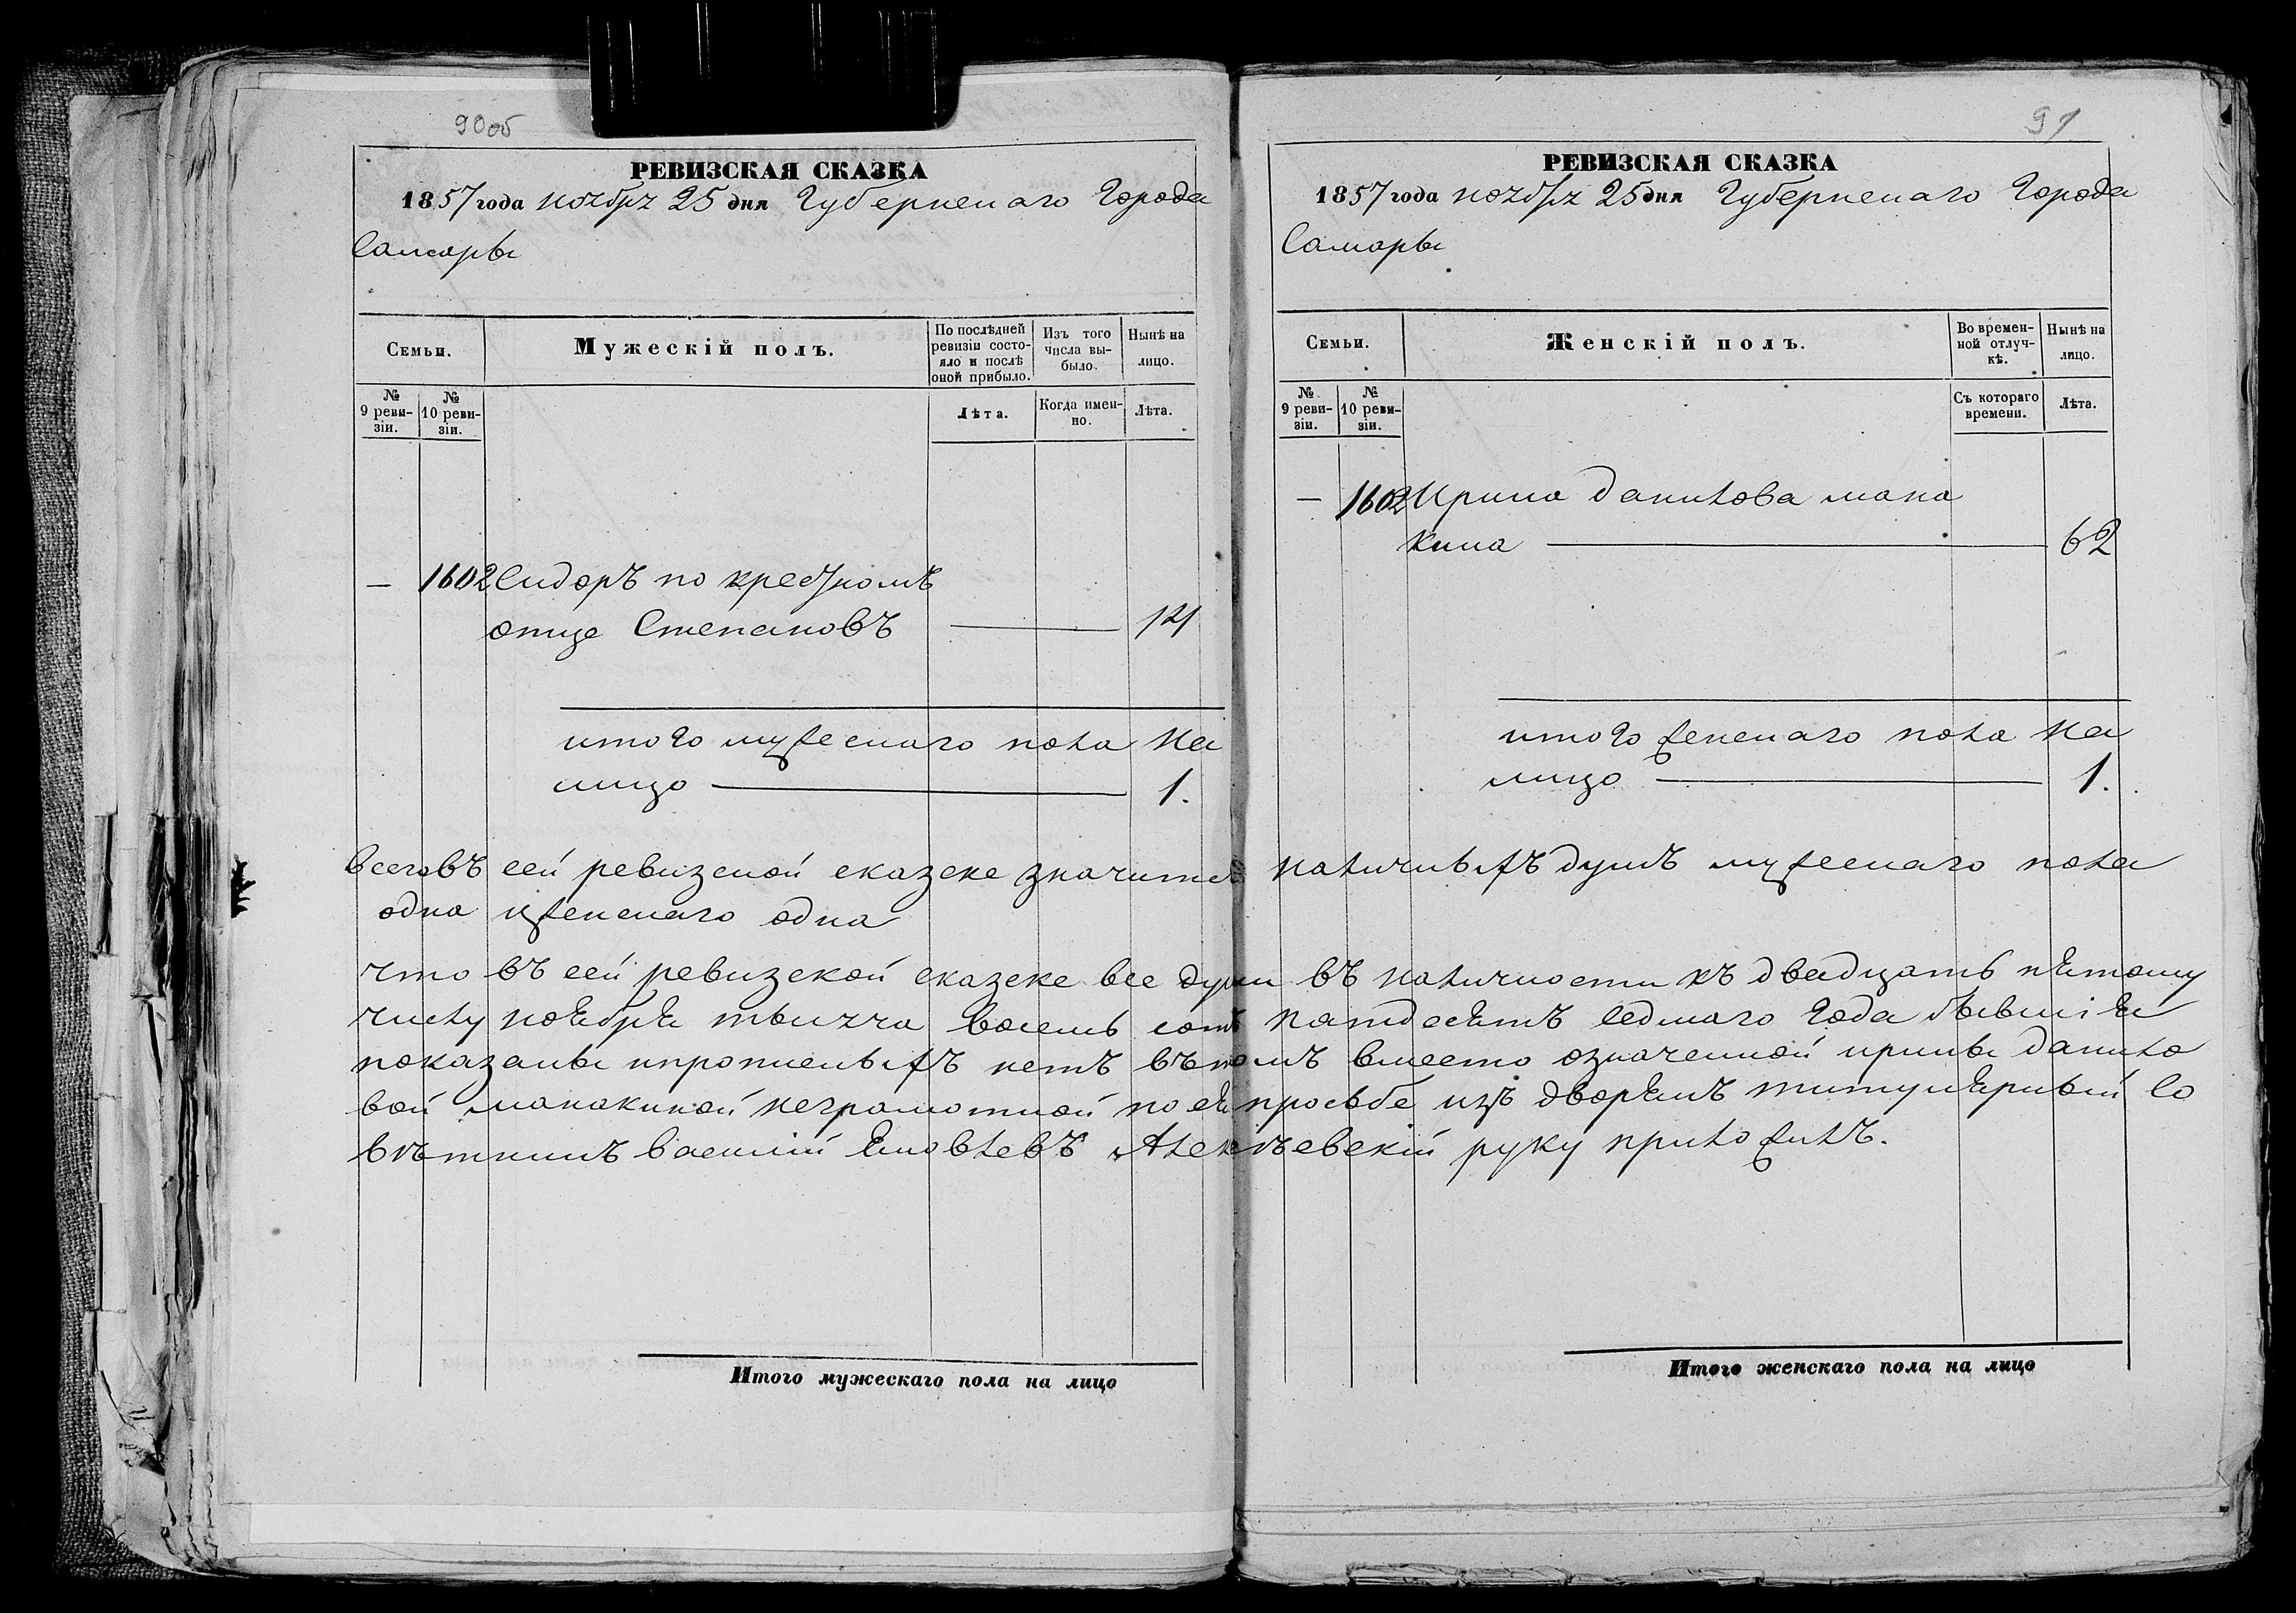 90 об
РЕВИЗСКАЯ СКАЗКА
1857 года ноября 25 дня Губернскаго Города
Самары
Семьи.
Мужескій полъ.
По послѣдней ревизіи состояло и послѣ оной прибыло.
Изъ того числа выбыло.
Нынѣ на лицо.
№ 9 ревизіи.
№ 10 ревизіи.
Лѣта.
Когда именно.
Лѣта.
— 1602 Сидоръ по крестномъ
отце Степановъ — 14
итого мужескаго пола на
лицо — 1.
91
РЕВИЗСКАЯ СКАЗКА
1857 года ноября 25 дня Губернскаго Города
Самары
Семьи.
Женскій полъ.
Во временной отлучкѣ.
Нынѣ на лицо.
№ 9 ревизіи.
№ 10 ревизіи.
Съ котораго времени.
Лѣта.
— 1602 Ирина данилова мана
кина — 62
итого женскаго пола на
лицо — 1.
Всеговъ сей ревизской сказске значится наличныхъ душъ мужескаго пола
одна иженскаго одна
что въ сей ревизской сказске все души въ наличности къ двадцать пятому
числу ноября тысяча восемь сотъ пятдесятъ седмаго года бывшія
показаны ипрописныхъ нетъ въ томъ вместо означенной ирины данило
вой манакиной неграмотной по ея просьбе изъ дворянъ титулярный со
вѣтникъ василій Яковлевъ руку приложилъ.
Итого мужескаго пола на лицо
Итого женскаго пола на лицо